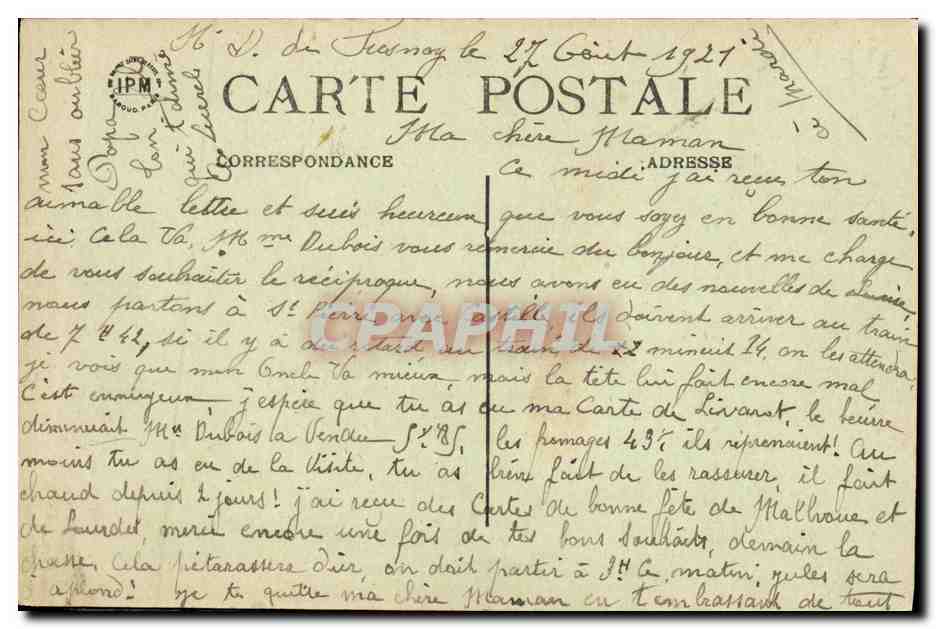 N. D. de Fresnay le 27 Août 1921
CARTE POSTALE
IPM
Ma chère Maman
CORRESPONDANCE ADRESSE
Ce midi j'ai reçu ton
aimable lettre et suis heureux que vous soyez en bonne santé,
ici Cela Va, Mme Dubois vous remercie du bonjour, et me charge
de vous souhaiter le réciproque, nous avons eu des nouvelles de
nous partons à St Pierre avec ils doivent arriver au train
de 7H42, si il y à du retard au train de 22 minuit 14, on les attendra,
je vois que mon Oncle Va mieux, mais la tête lui fait encore mal
C'est ennuyeux, j'espère que tu as eu ma Carte de Livarot, le beurre
diminuait Mr Dubois a Vendu les fromages 43f, ils réprenaient! Au
moins tu as eu de la Visite, tu as bien fait de les rassurer, il fait
chaud depuis 2 jours! j'ai reçu des Cartes de bonne fête de Malhoue et
de Lourdes, merci encore une fois de tes bons souhaits, demain la
chasse, Cela pétarassera dur, on doit partir à 3H Ce matin, jules sera
d'aplomb! je te quitte ma chère Maman en t'embrassant de tout
mon Cœur
sans oublier
Papa
ton
qui t'aime
CPAPHIL